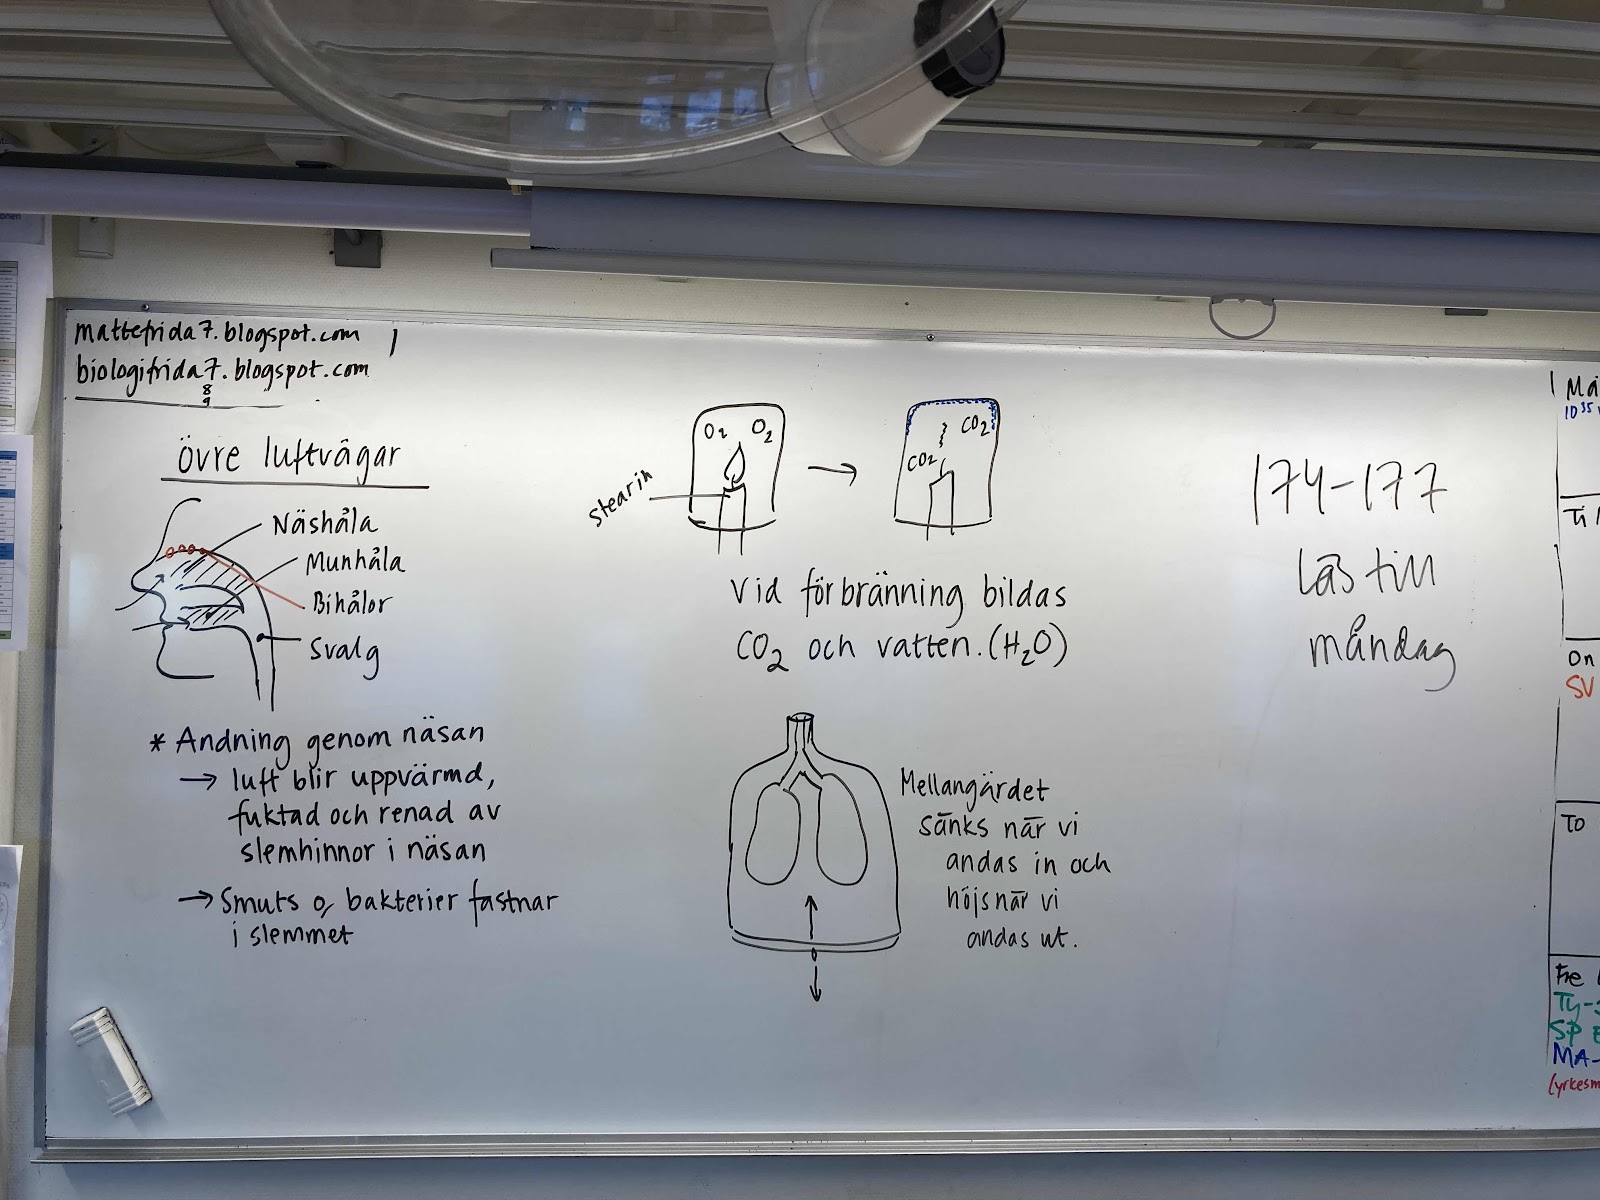 mattefrida7.blogspot.com
biologifrida7.blogspot.com
8
9
övre luftvägar
Näshåla
Munhåla
Bihålor
Svalg
* Andning genom näsan
→ luft blir uppvärmd,
fuktad och renad av
slemhinnor i näsan
→ Smuts o, bakterier fastnar
i slemmet
O2 O2
stearin
→
CO2
CO2
Vid förbränning bildas
CO2 och vatten. (H2O)
Mellangärdet
sänks när vi
andas in och
höjs när vi
andas ut.
174-177
läs till
måndag
Må
10 35
Ti
On
SV
TO
Fre
Ty-
SP E
MA-
(yrkesm